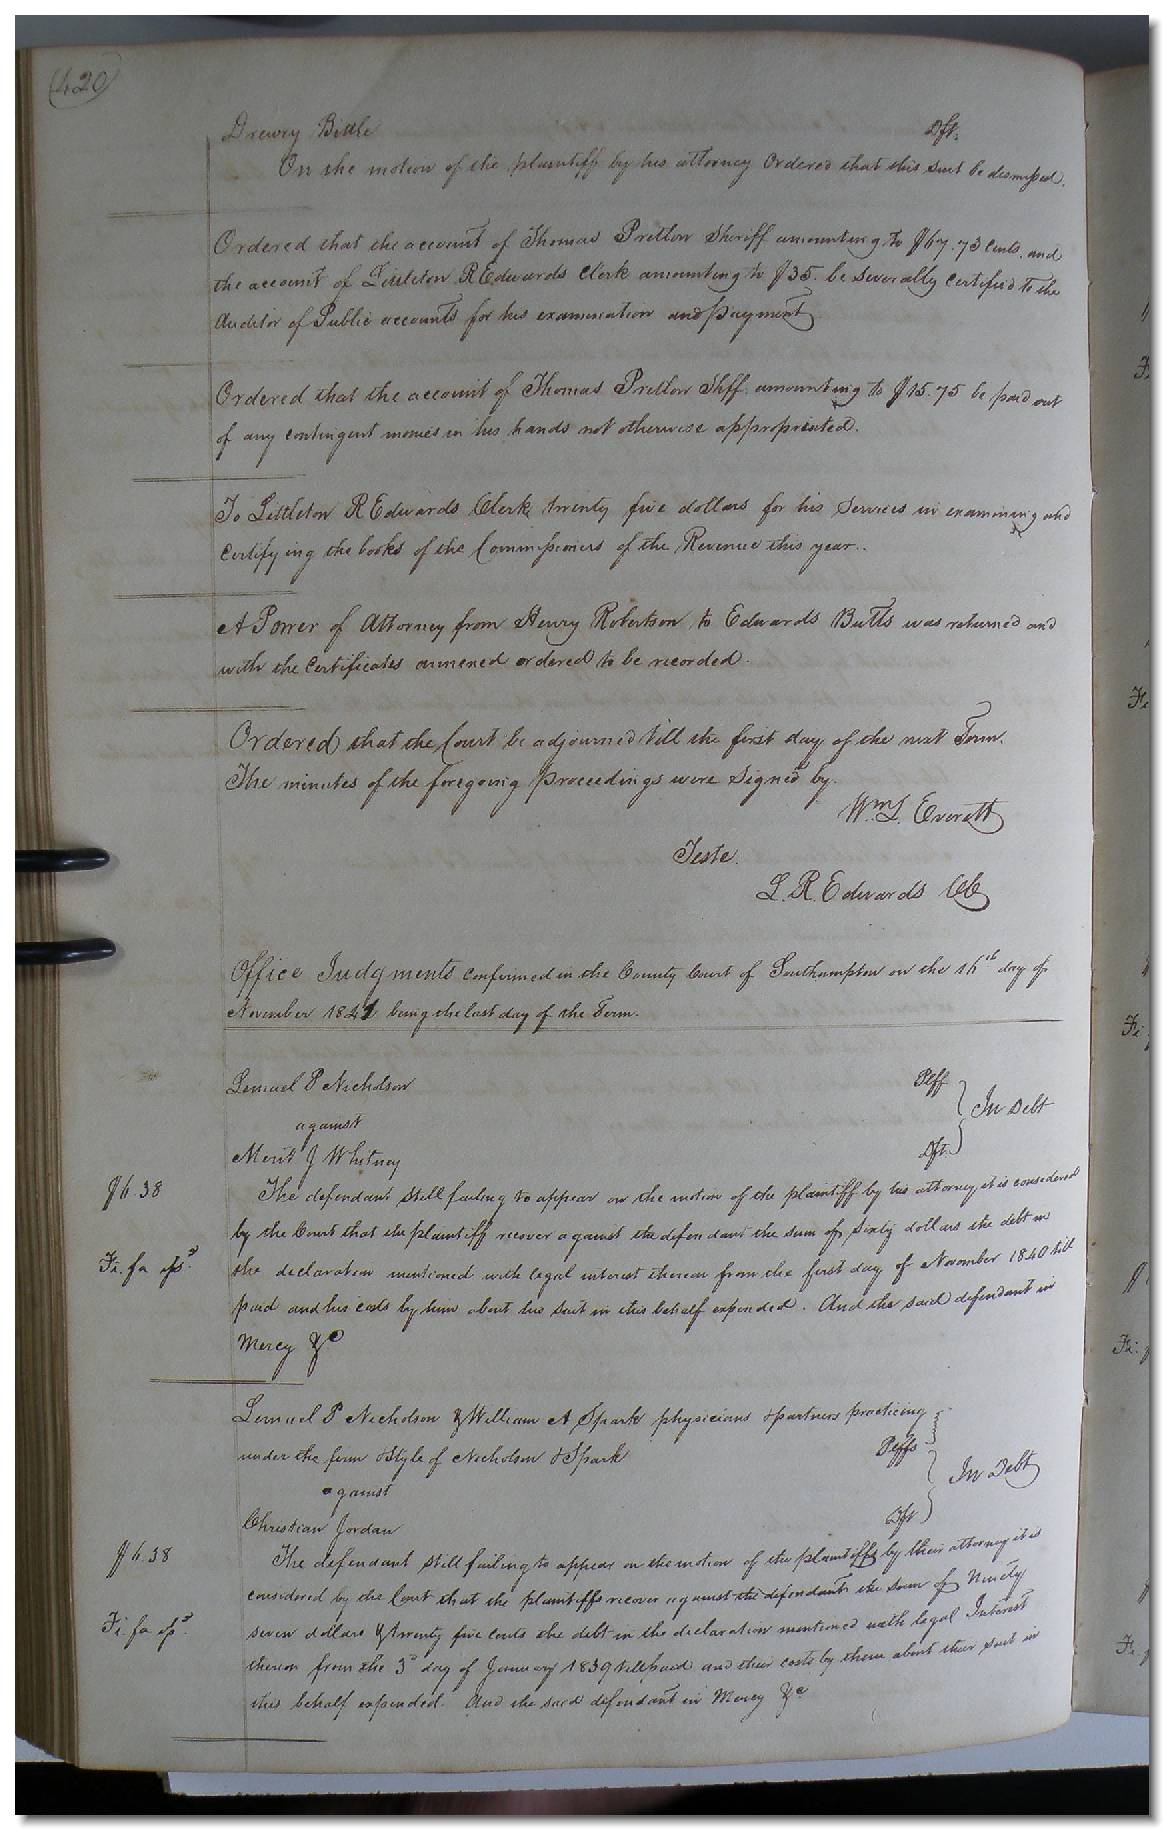 (420)
Drewry Bittle Dft.
On the motion of the plaintiff by his attorney Ordered that this suit be dismissed.
Ordered that the account of Thomas Pretlow Sheriff amounting to $67.73 Cents. and
the account of Littleton R Edwards Clerk amounting to $35. be severally certified to the
Auditor of Public accounts for his examination and payment
Ordered that the account of Thomas Pretlow Shff. amounting to $15.75 be paid out
of any contingent monies in his hands not otherwise appropriated.
To Littleton R Edwards Clerk twenty five dollars for his Services in examining and
Certifying the books of the Commissioners of the Revenue this year.
A Power of Attorney from Henry Robertson to Edwards Butts was returned and
with the Certificates annexed ordered to be recorded.
Ordered that the Court be adjourned till the first day of the next Term.
The minutes of the foregoing proceedings were signed by.
Wm. L. Everett
Teste.
L. R. Edwards CC
Office Judgments confirmed in the County Court of Southampton on the 16th day of
November 1841 being the last day of the Term.
Lemuel P Nicholson Plff
against } In Debt
Merit J Whitney Dft.
$6.38
The defendant still failing to appear on the motion of the plaintiff by his attorney it is considered
by the Court that the plaintiff recover against the defendant the sum of Sixty dollars the debt in
Fi. fa isd.
the declaration mentioned with legal interest thereon from the first day of November 1840 till
paid and his costs by him about his suit in this behalf expended. And the said defendant in
Mercy &c
Lemuel P Nicholson & William A Spark physicians & partners practicing
under the firm & Style of Nicholson & Spark Plffs
against } In Debt
Christian Jordan Dft
$6.38
The defendant still failing to appear on the motion of the plaintiffs by their attorney it is
considered by the Court that the plaintiffs recover against the defendant the sum of Ninety
Fi. fa isd.
seven dollars & twenty five cents the debt in the declaration mentioned with legal Interest
thereon from the 3d day of January 1839 till paid and their costs by them about their suit in
this behalf expended. And the said defendant in Mercy &c